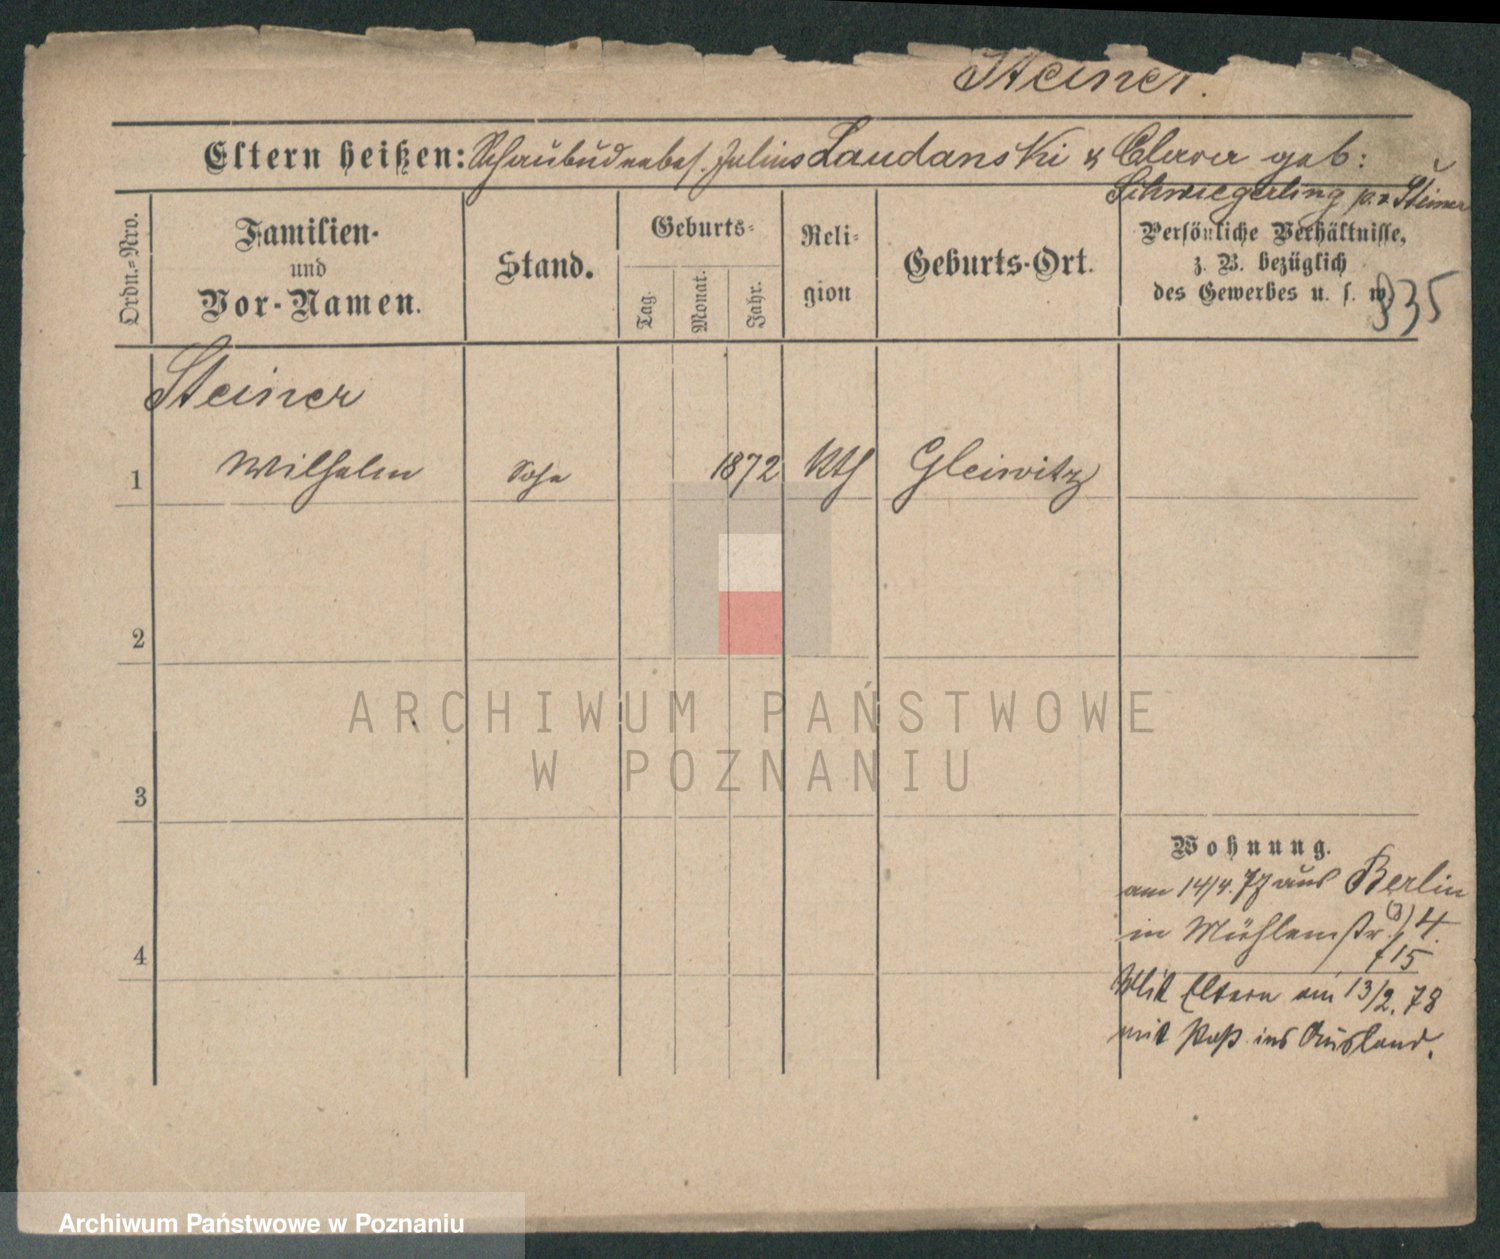 Steiner.
Eltern heißen: Schaubudenbes. Julius Laudanski & Clara geb:
Schwiegerling p. v. Steiner
Ordn.-Nro.
Familien-
und
Vor-Namen.
Stand.
Geburts-
Tag.
Monat.
Jahr.
Reli-
gion
Geburts-Ort.
Persönliche Verhältnisse,
z. B. bezüglich
des Gewerbes u. s. w.
935
Steiner
1 Wilhelm Sohn 1872 kth Gleiwitz
2
3
4
Wohnung.
am 14/4. 77 aus Berlin
in Mühlenstr. 14.
f 15
Mit Eltern am 13/2. 78
mit Paß ins Ausland.
ARCHIWUM PAŃSTWOWE
W POZNANIU
Archiwum Państwowe w Poznaniu